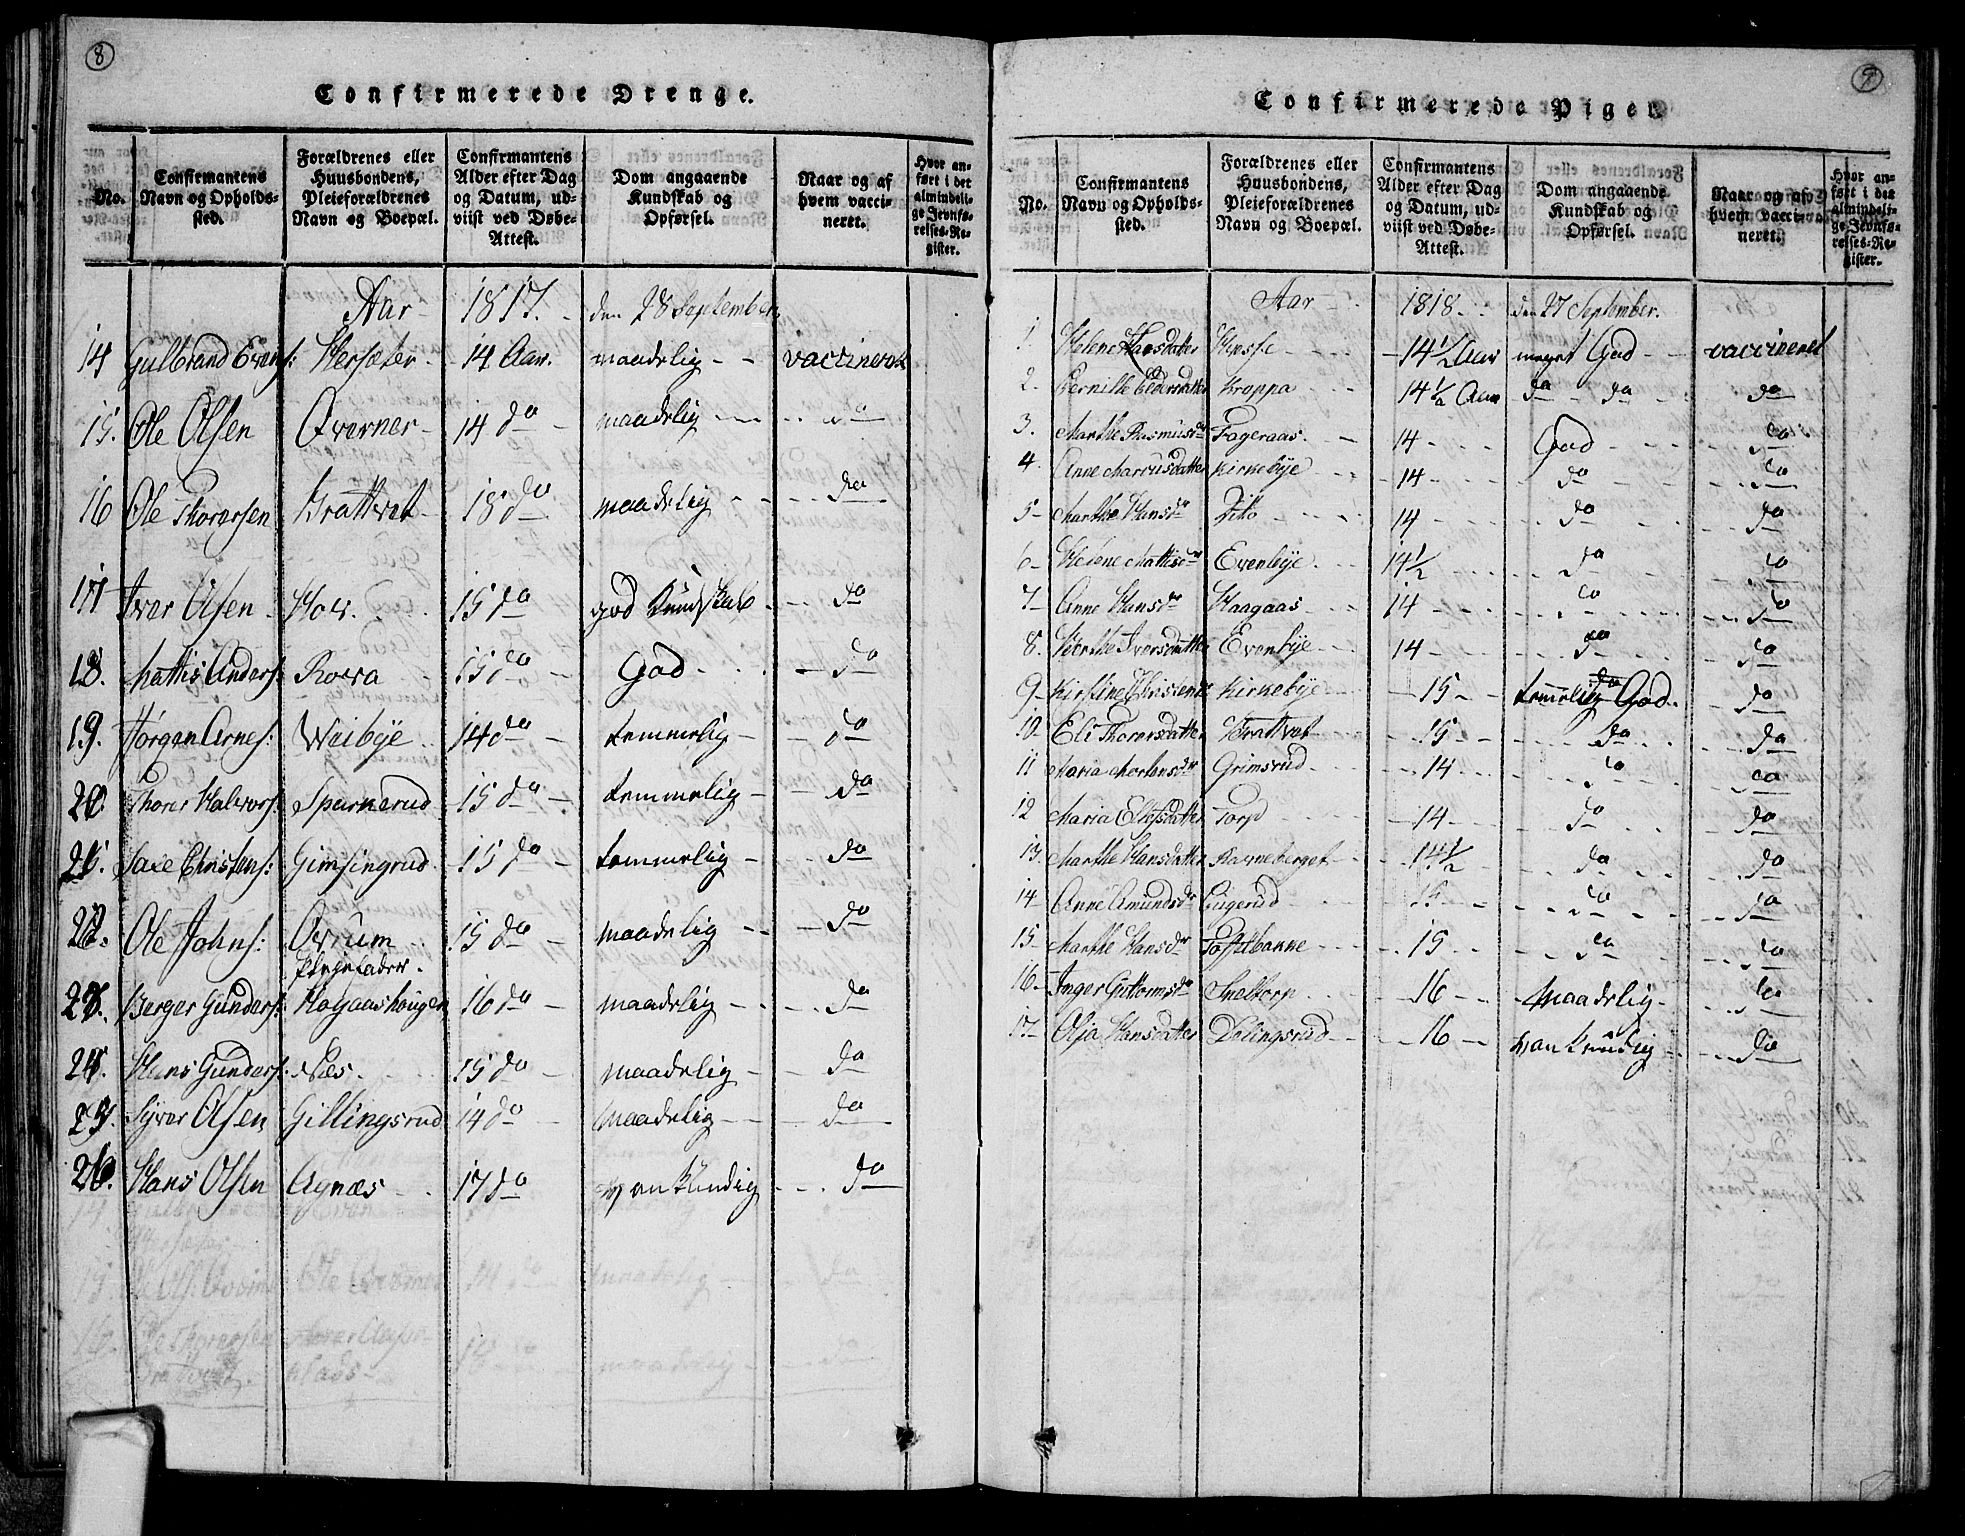 8
Confirmerede Drenge.
No. | Confirmantens Navn og Opholdssted. | Forældrenes eller Huusbondens, Pleieforældrenes Navn og Boepæl. | Confirmantens Alder efter Dag og Datum, udviist ved Døbe-Attest. | Dom angaaende Kundskab og Opførsel. | Naar og af hvem vaccineret. | Hvor anført i det almindelige Jevnførelses-Register.
Aar 1817. den 28 September
14 Gulbrand Evens: Herseter 14 Aar. maadelig vaccineret
15. Ole Olsen Overner 14 do maadelig do
16 Ole Thorersen Brattvet 18 do maadelig do
17 Iver Olsen Hov. 15 do god Kundskab do
18. Mattis Anders: Roera 15 do God do
19. Jørgen Arnes: Weibye 14 do temmelig do
20 Thorer Halvors: Sparnerud 15 do temmelig do
21. Saxe Christens: Gimsingrud 15 do temmelig do
22. Ole Johns: Ovrum 15 do maadelig do
Plejefader.
23. Berger Gunders: Hogaashougen 16 do maadelig do
24. Hans Gunders: Næs 15 do maadelig do
25. Syver Olsen Gillingsrud 14 do maadelig do
26. Hans Olsen Agnæs 17 do vankundig do
9
Confirmerede Piger
No. | Confirmantens Navn og Opholdssted. | Forældrenes eller Huusbondens, Pleieforældrenes Navn og Boepæl. | Confirmantens Alder efter Dag og Datum, udviist ved Døbe-Attest. | Dom angaaende Kundskab og Opførsel. | Naar og af hvem vaccineret. | Hvor anført i det almindelige Jevnførelses-Register.
Aar 1818. den 27 September.
1. Helene Hansdatter 14 1/2 Aar meget God vaccineret
2. Pernille Pedersdatter Kroppa 14 1/2 Aar do do do
3. Marthe Rasmusdr Fageraas 14 God do
4. Anne Marcusdatter Kirkebye 14 do do
5 Marthe Hansdr Dito 14 do do
6 Helene Mattisdr Evenbye 14 1/2 do do
7 Anne Hansdr Haagaas 14 do do
8. Berthe Iversdatter Evenbye 14 do do
9 Kirstine Christendr Kirkebye 15 temmelig God do
10 Eli Thorersdatter Brattvet 15 do do
11 Maria Mortensdr Grimsrud 14 do do
12 Maria Ellefsdatter Torp 14 do do
13 Marthe Hansdatter Ravneberget 14 1/2 do do
14 Anne Amundsdr Eugerud 15 do do
15 Marthe Hansdr Toftebanne 15 do do
16 Inger Guttormsdr Skeltorp 16 Maadelig do
17 Olja Hansdatter Delingsrud 16 vankundig do